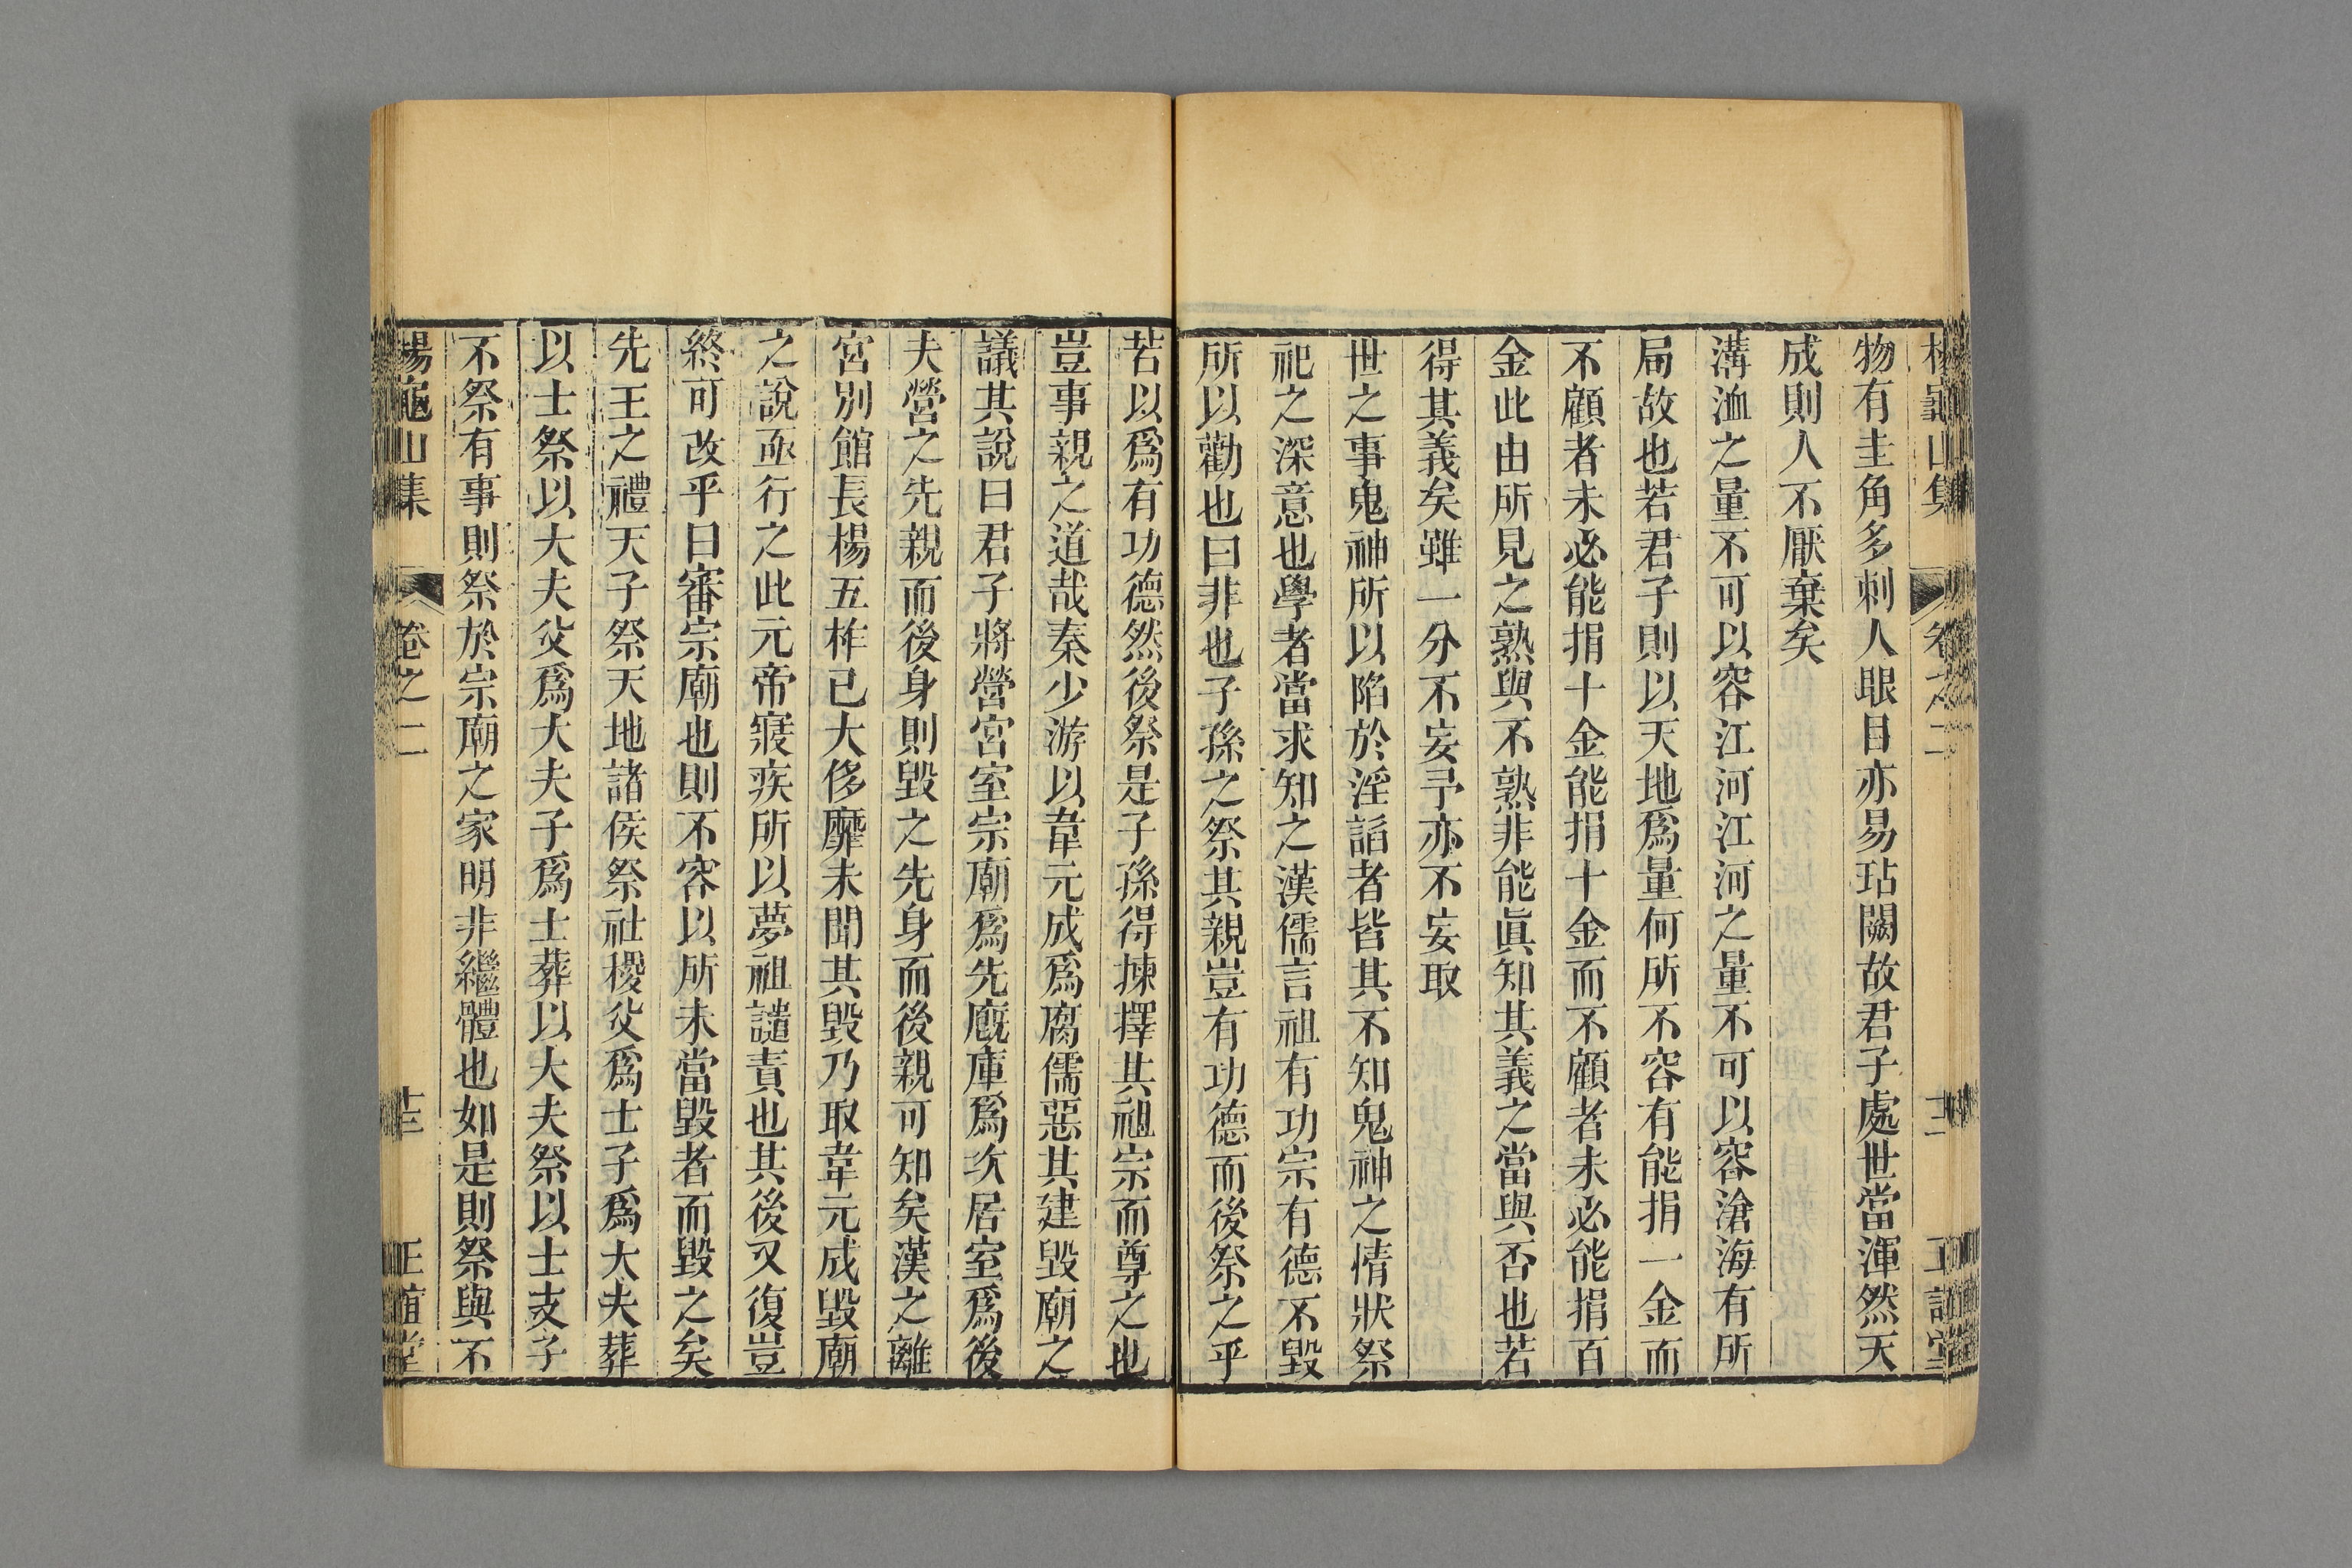 楊龜山集　卷之二　十二　正誼堂
物有圭角多刺人眼目亦易玷闕故君子處世當渾然天
成則人不厭棄矣
溝洫之量不可以容江河江河之量不可以容滄海有所
局故也若君子則以天地爲量何所不容有能捐一金而
不顧者未必能捐十金能捐十金而不顧者未必能捐百
金此由所見之熟與不熟非能眞知其義之當與否也若
得其義矣雖一分不妄予亦不妄取
世之事鬼神所以陷於淫謟者皆其不知鬼神之情狀祭
祀之深意也學者當求知之漢儒言祖有功宗有德不毀
所以勸也曰非也子孫之祭其親豈有功德而後祭之乎
若以爲有功德然後祭是子孫得揀擇其祖宗而尊之也
豈事親之道哉秦少游以韋元成爲腐儒惡其建毀廟之
議其說曰君子將營宮室宗廟爲先廐庫爲次居室爲後
夫營之先親而後身則毀之先身而後親可知矣漢之離
宮別館長楊五柞已大侈靡未聞其毀乃取韋元成毀廟
之說亟行之此元帝寢疾所以夢祖譴責也其後又復豈
終可改乎曰審宗廟也則不容以所未當毀者而毀之矣
先王之禮天子祭天地諸侯祭社稷父爲士子爲大夫葬
以士祭以大夫父爲大夫子爲士葬以大夫祭以士支子
不祭有事則祭於宗廟之家明非繼體也如是則祭與不
楊龜山集　卷之二　十三　正誼堂